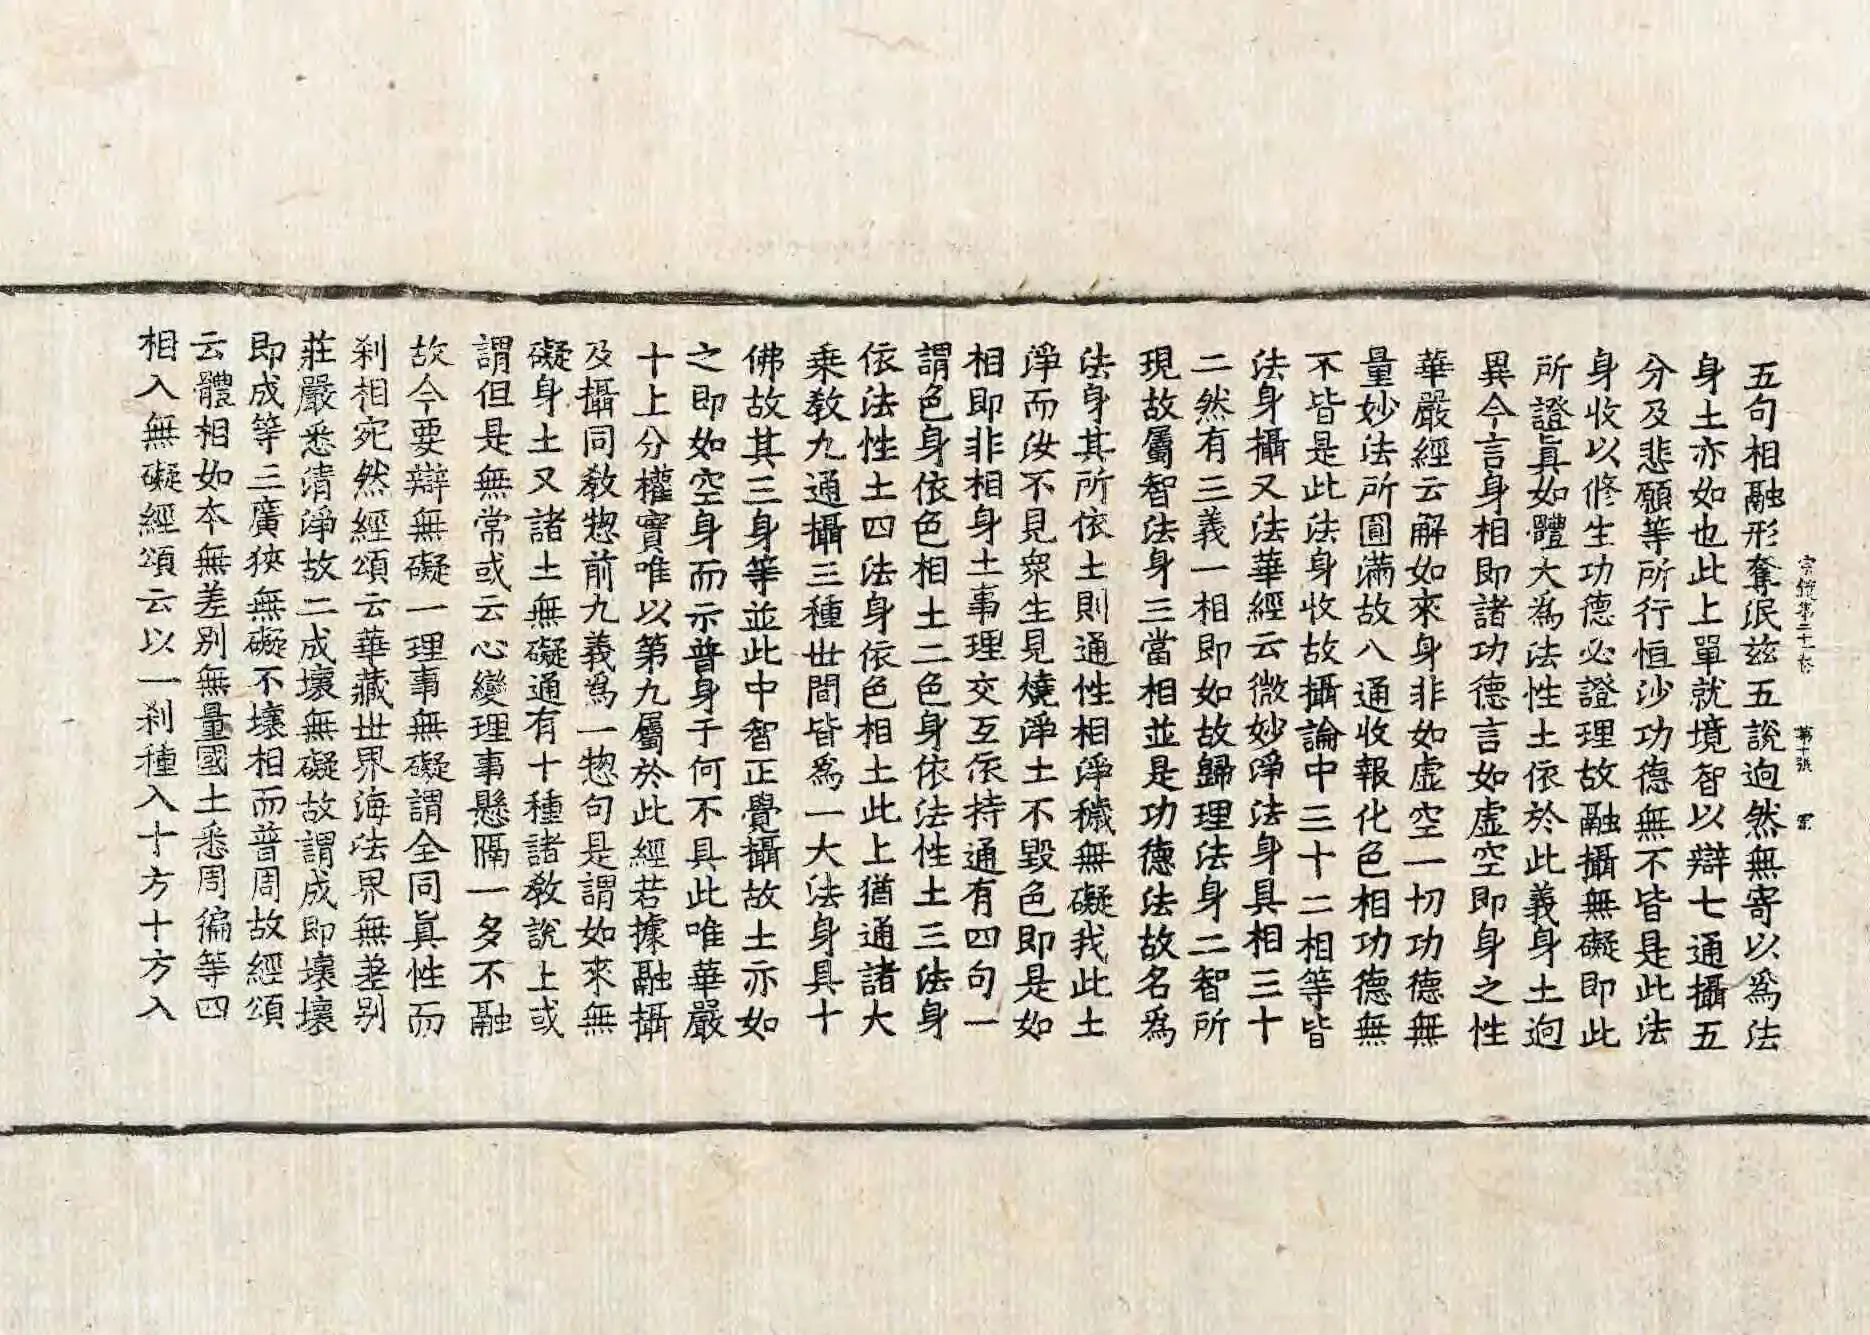 宗鏡第三十卷 第十張 寧
五句相融形奪泯茲五說迥然無寄以爲法
身土亦如也此上單就境智以辯七通攝五
分及悲願等所行恒沙功德無不皆是此法
身收以修生功德必證理故融攝無礙即此
所證眞如體大爲法性土依於此義身土迥
異今言身相即諸功德言如虛空即身之性
華嚴經云解如來身非如虛空一切功德無
量妙法所圓滿故八通收報化色相功德無
不皆是此法身收故攝論中三十二相等皆
法身攝又法華經云微妙淨法身具相三十
二然有三義一相即如故歸理法身二智所
現故屬智法身三當相並是功德法故名爲
法身其所依土則通性相淨穢無礙我此土
淨而汝不見衆生見燒淨土不毀色即是如
相即非相身土事理交互依持通有四句一
謂色身依色相土二色身依法性土三法身
依法性土四法身依色相土此上猶通諸大
乗教九通攝三種世間皆爲一大法身具十
佛故其三身等並此中智正覺攝故土亦如
之即如空身而示普身于何不具此唯華嚴
十上分權實唯以第九屬於此經若據融攝
及攝同教惣前九義爲一惣句是謂如來無
礙身土又諸土無礙通有十種諸教說上或
謂但是無常或云心變理事懸隔一多不融
故今要辯無礙一理事無礙謂全同眞性而
刹相宛然經頌云華藏世界海法界無差别
莊嚴悉清淨故二成壞無礙故謂成即壞壞
即成等三廣狹無礙不壞相而普周故經頌
云體相如本無差别無量國土悉周徧等四
相入無礙經頌云以一刹種入十方十方入